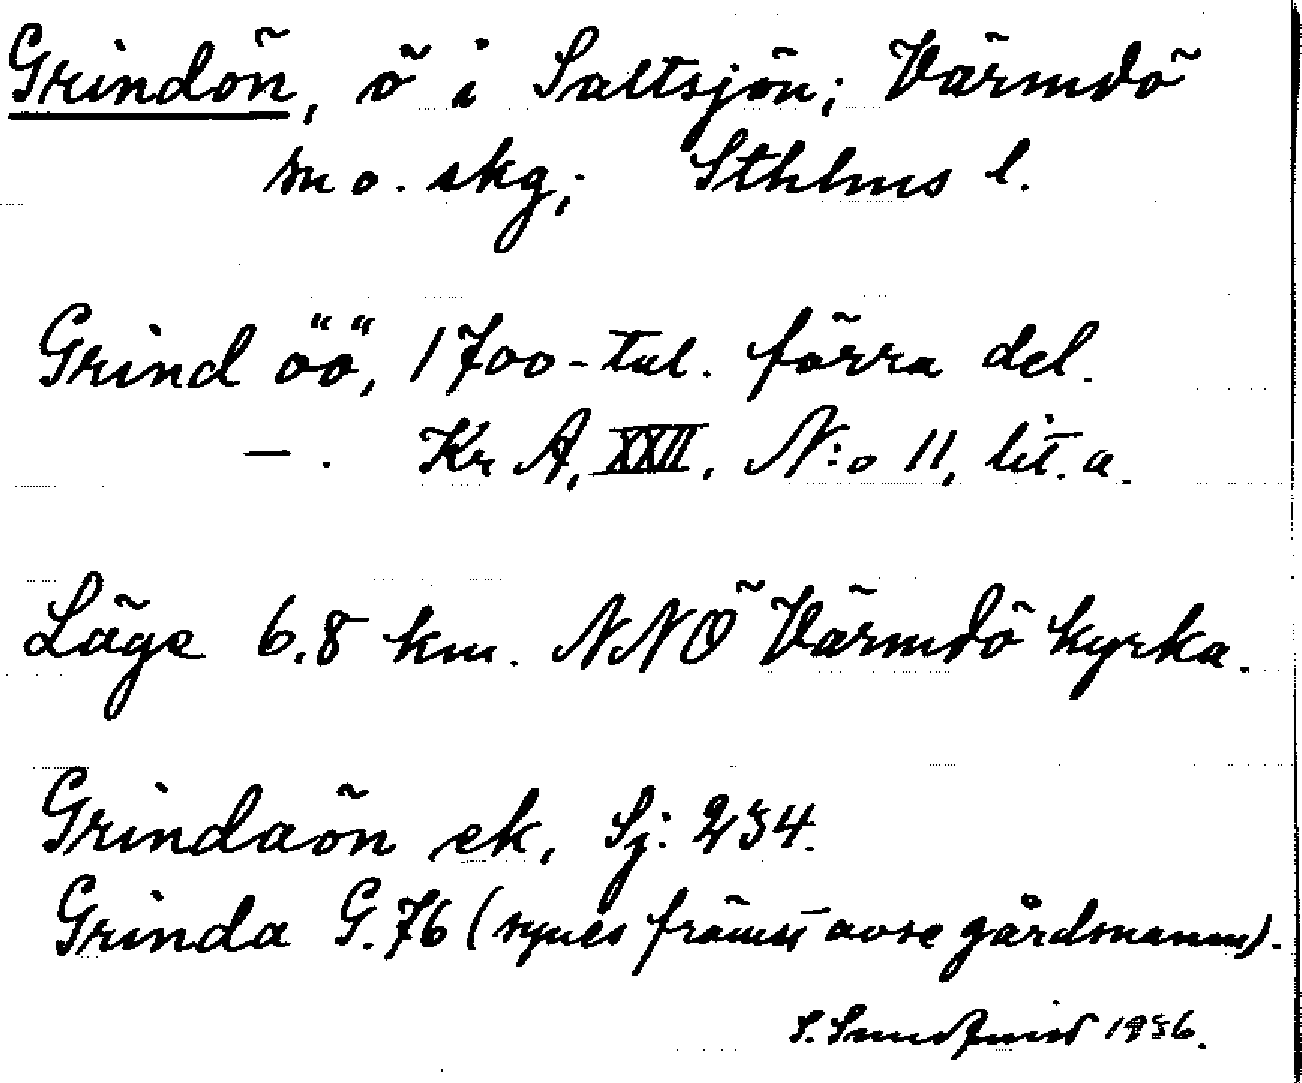 Grindön, ö i Saltsjön; Värmdö
sn o. skg; Sthlms l.
Grind öö, 1700-tal. förra del.
— . Kr A, XXII, N:o 11, lit. a.
Läge 6.8 km. NNÖ Värmdö kyrka.
Grindaön ek, Sj: 234.
Grinda G. 76 (synes främst avse gårdsnamn).
S. Sundquist 1936.